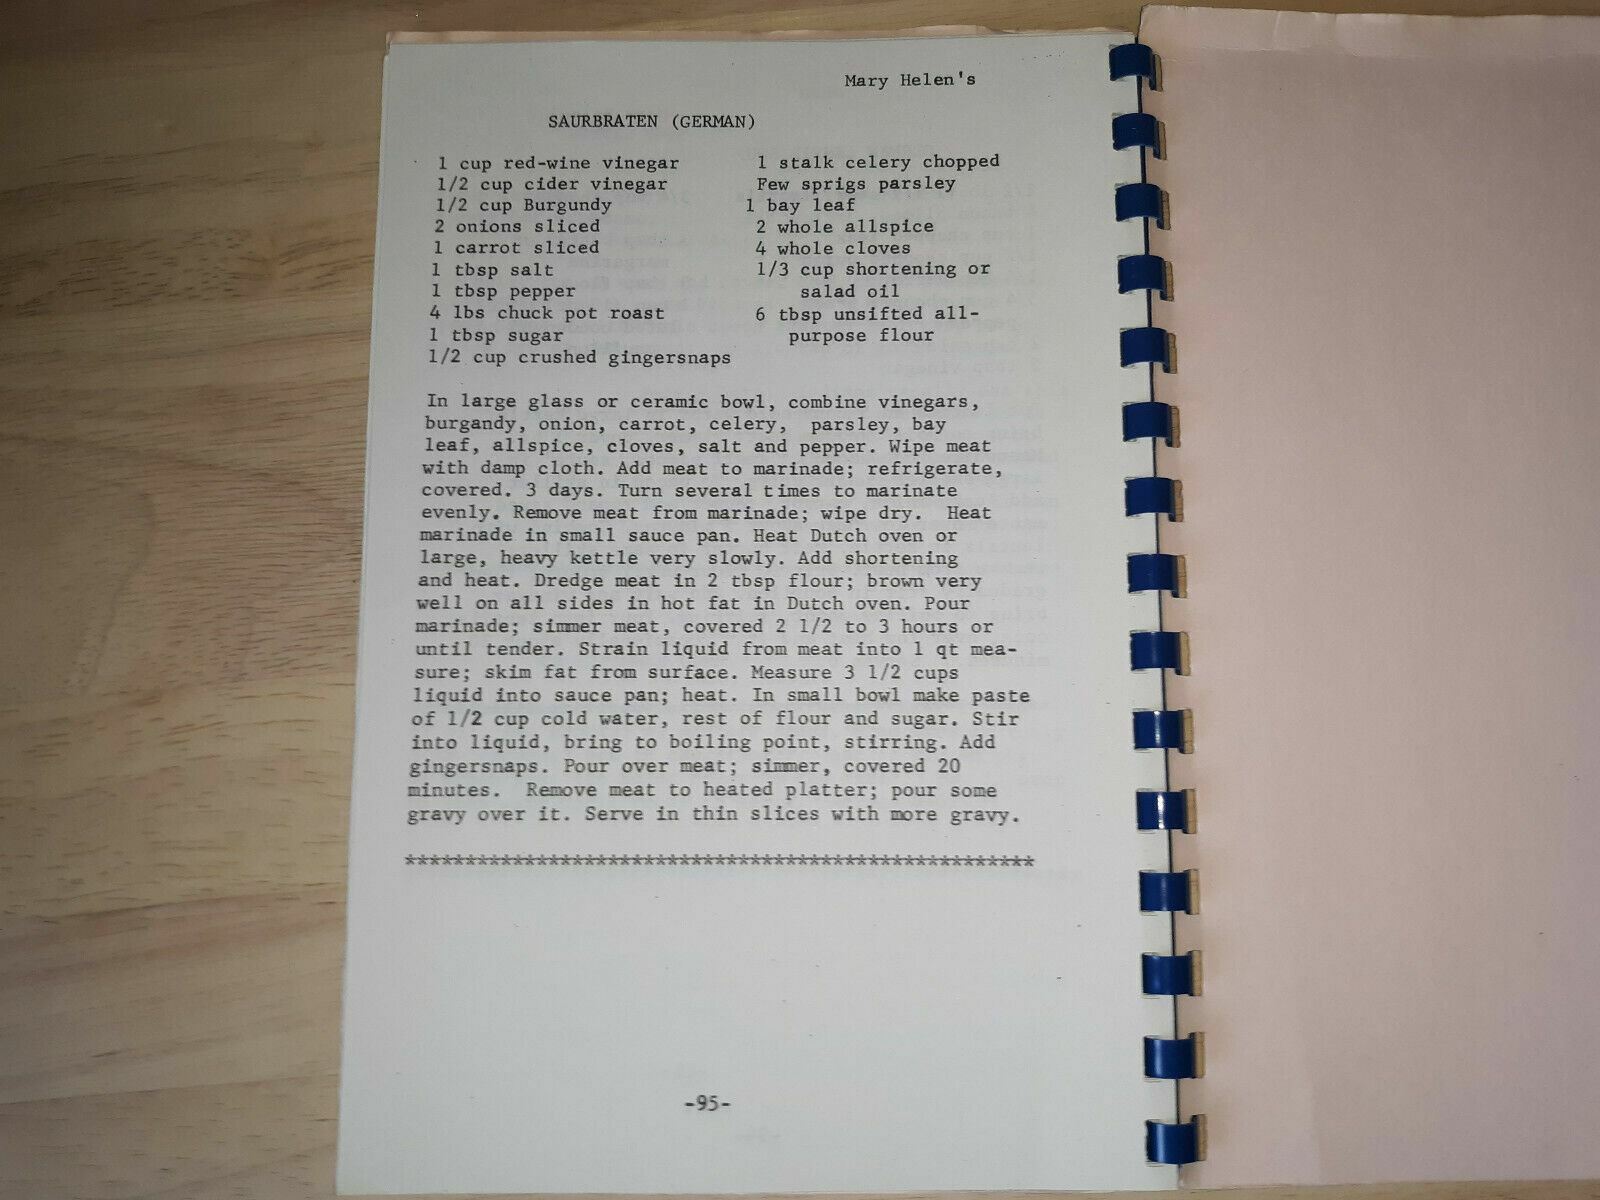 Mary Helen's
SAURBRATEN (GERMAN)
1 cup red-wine vinegar
1/2 cup cider vinegar
1/2 cup Burgundy
2 onions sliced
1 carrot sliced
1 tbsp salt
1 tbsp pepper
4 lbs chuck pot roast
1 tbsp sugar
1/2 cup crushed gingersnaps
1 stalk celery chopped
Few sprigs parsley
1 bay leaf
2 whole allspice
4 whole cloves
1/3 cup shortening or
salad oil
6 tbsp unsifted all-
purpose flour
In large glass or ceramic bowl, combine vinegars,
burgandy, onion, carrot, celery, parsley, bay
leaf, allspice, cloves, salt and pepper. Wipe meat
with damp cloth. Add meat to marinade; refrigerate,
covered. 3 days. Turn several times to marinate
evenly. Remove meat from marinade; wipe dry. Heat
marinade in small sauce pan. Heat Dutch oven or
large, heavy kettle very slowly. Add shortening
and heat. Dredge meat in 2 tbsp flour; brown very
well on all sides in hot fat in Dutch oven. Pour
marinade; simmer meat, covered 2 1/2 to 3 hours or
until tender. Strain liquid from meat into 1 qt mea-
sure; skim fat from surface. Measure 3 1/2 cups
liquid into sauce pan; heat. In small bowl make paste
of 1/2 cup cold water, rest of flour and sugar. Stir
into liquid, bring to boiling point, stirring. Add
gingersnaps. Pour over meat; simmer, covered 20
minutes. Remove meat to heated platter; pour some
gravy over it. Serve in thin slices with more gravy.
****************************************************
-95-